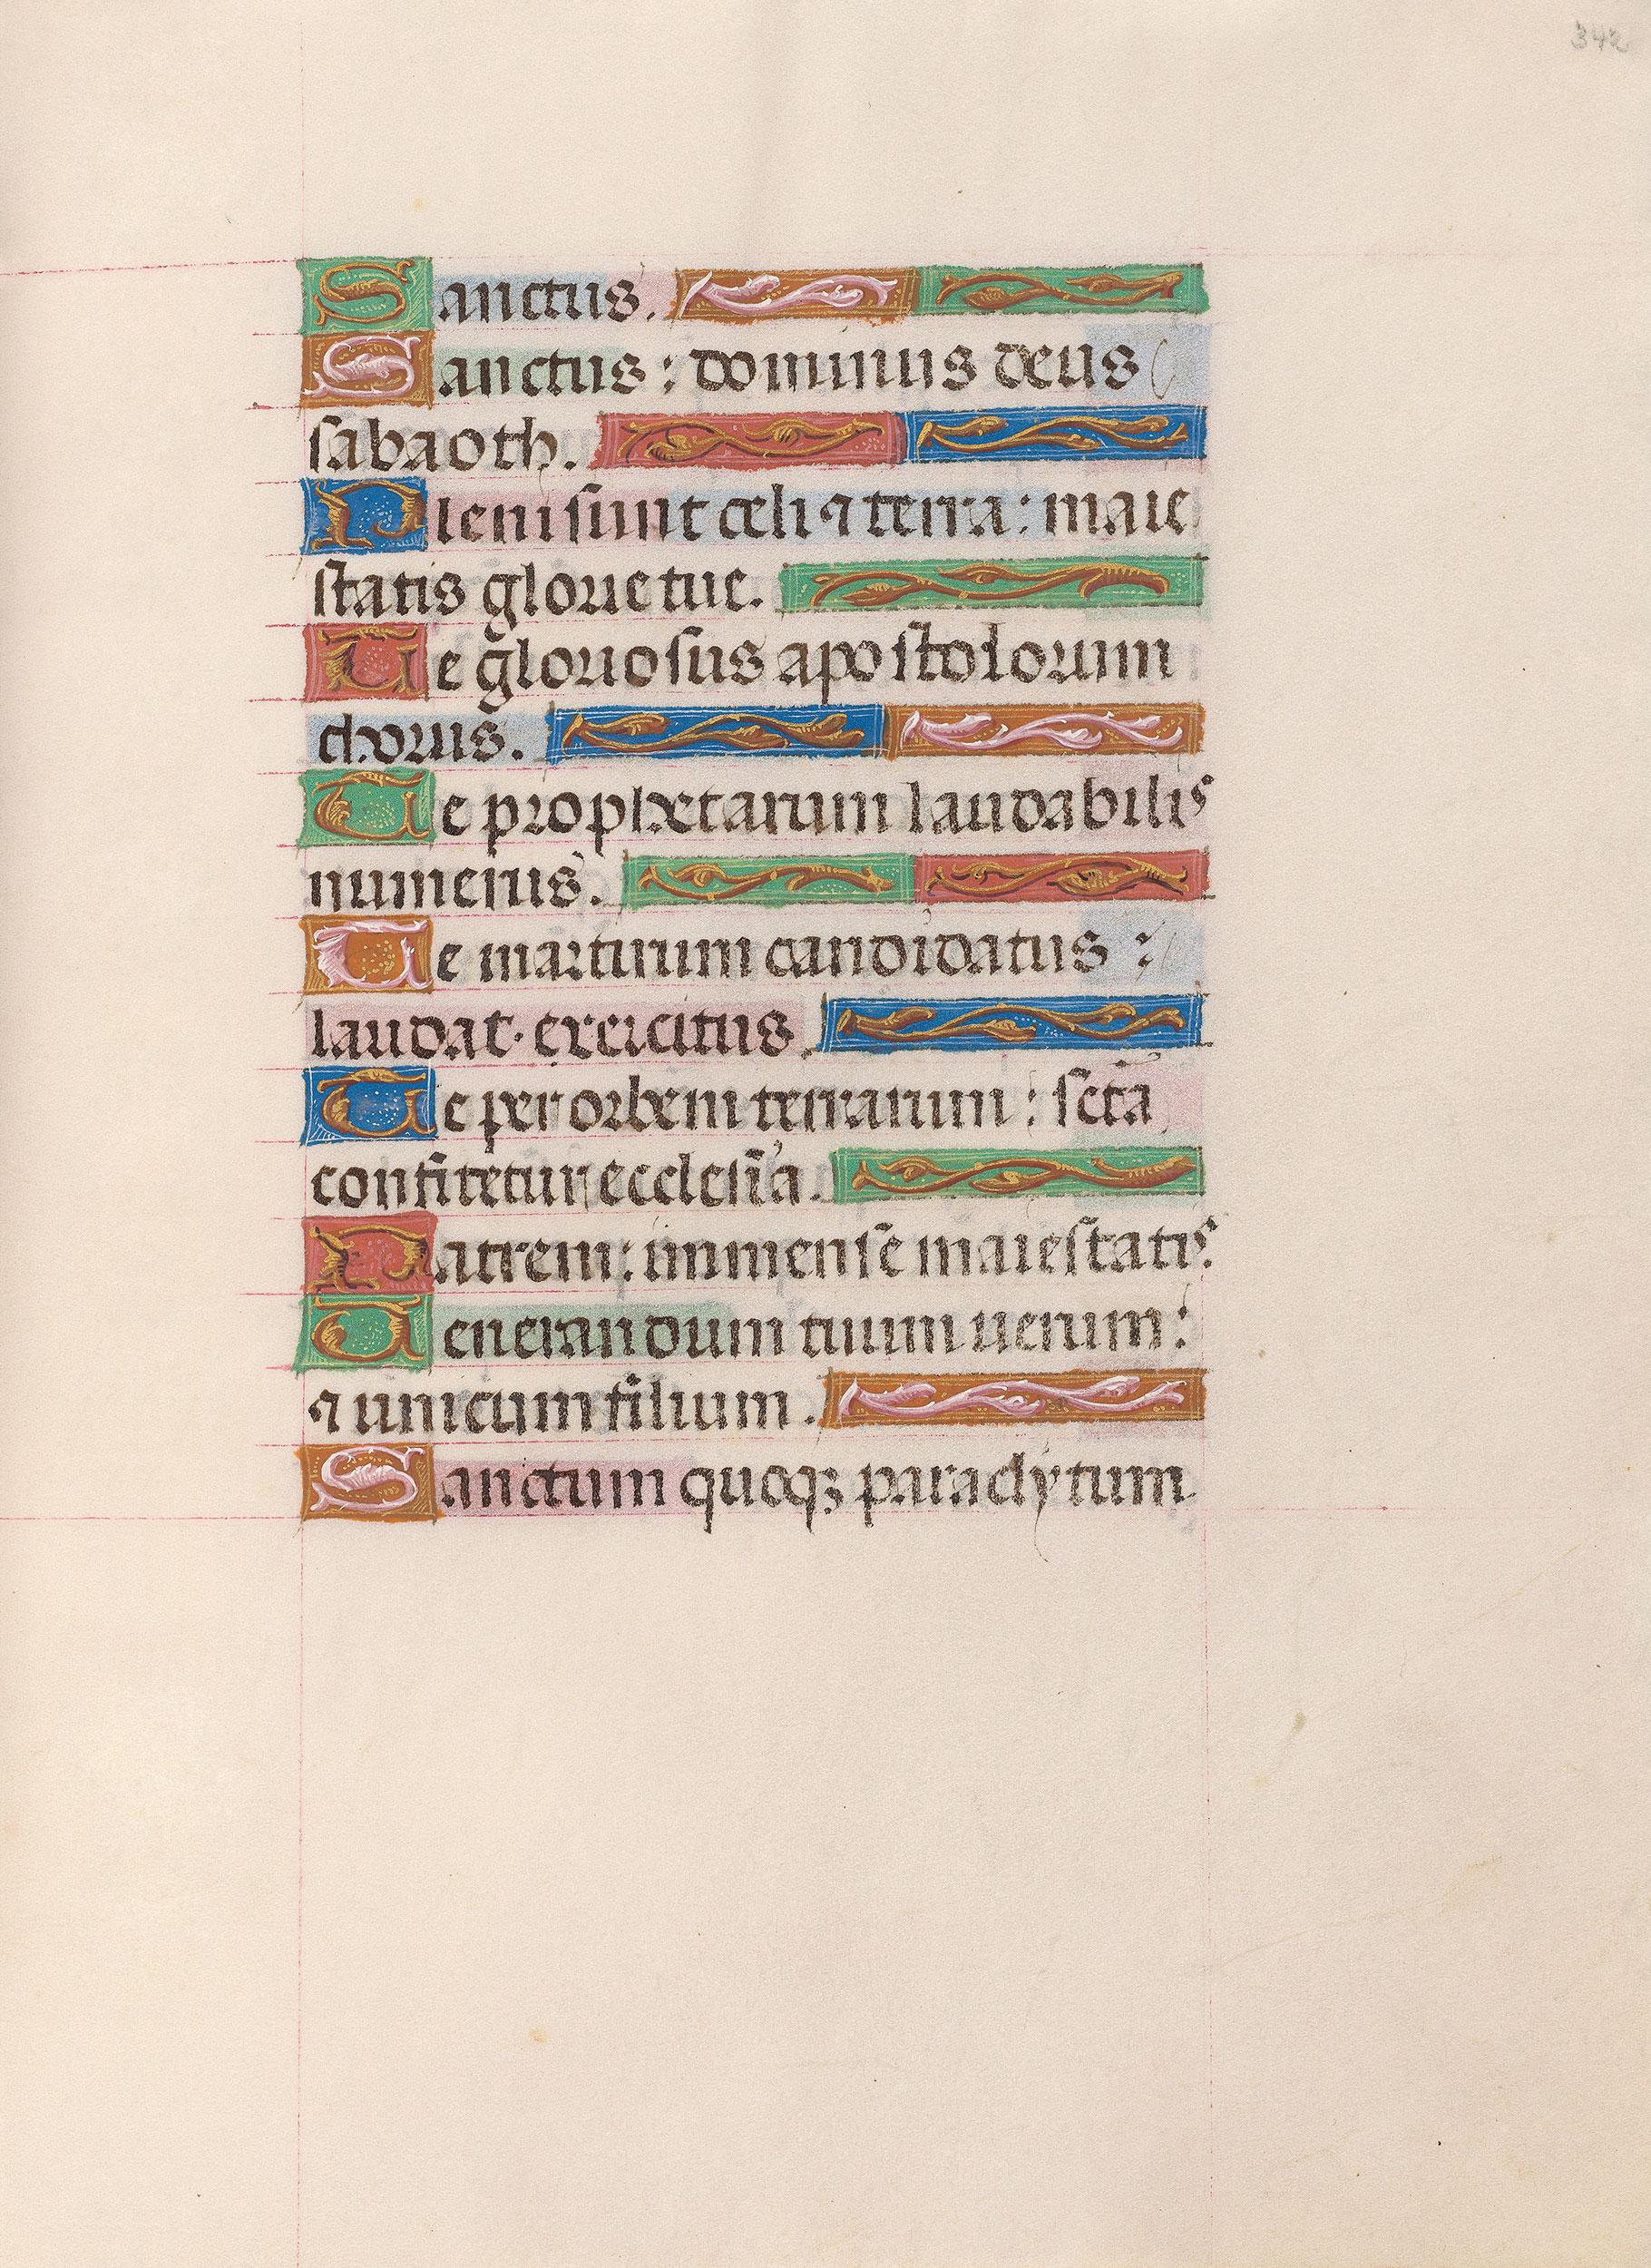 342
Sanctus.
Sanctus: dominus deus
sabaoth.
Pleni sunt celi ⁊ terra: maie
statis glorie tue.
Te gloriosus apostolorum
chorus.
Te prophetarum laudabilis
numerus.
Te martirum candidatus:
laudat. exercitus
Te per orbem terrarum: sctā
confitetur ecclesia.
Patrem: immense maiestatis.
Uenerandum tuum uerum:
⁊ unicum filium.
Sanctum quoqꝫ paraclytum